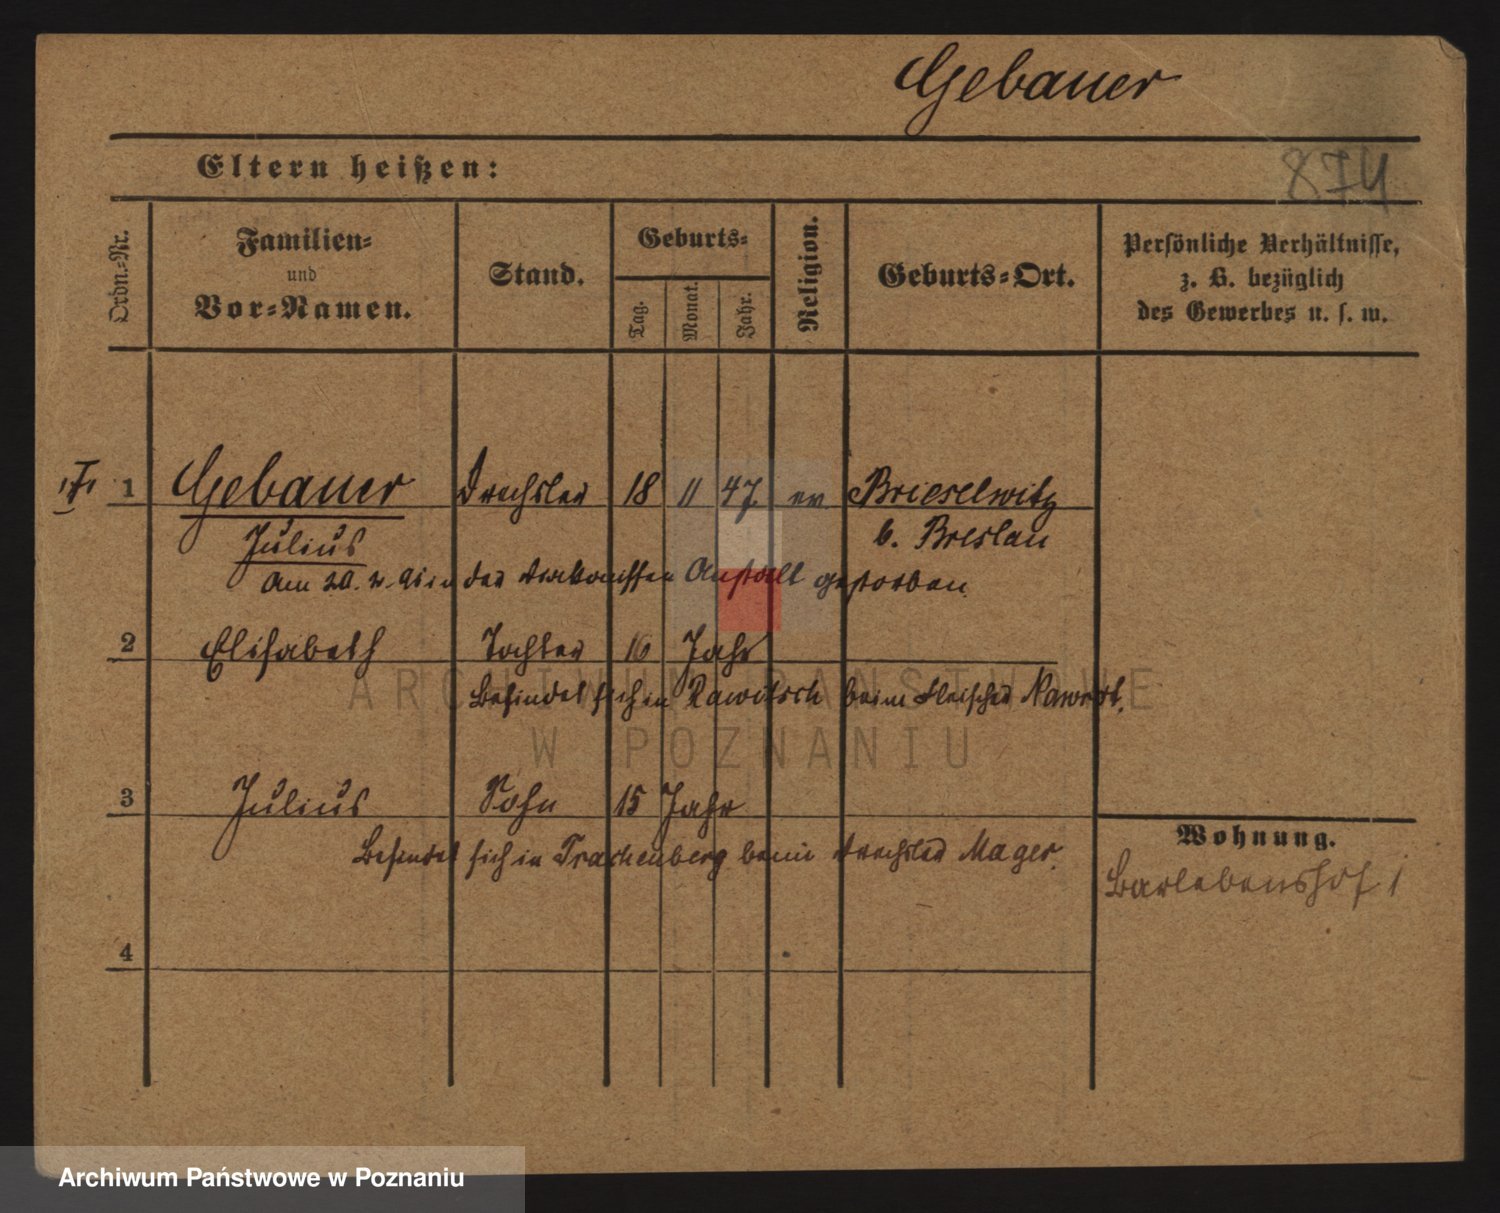 Gebauer
Eltern heißen:
874
Ordn.-Nr.
Familien-
und
Vor-Namen.
Stand.
Geburts-
Tag.
Monat.
Jahr.
Religion.
Geburts-Ort.
Persönliche Verhältnisse,
z. B. bezüglich
des Gewerbes u. s. w.
1 Gebauer Drechsler 18 11 47. ev. Brieselwitz
Julius b. Breslau
Am 20. 2. 91 in der Diakonissen Anstalt gestorben.
2 Elisabeth Tochter 16 Jahr
Befindet sich in Rawitsch beim Fleischer
3 Julius Sohn 15 Jahr
Befindet sich in Trachenberg beim Drechsler Mager.
Wohnung.
Barlebenshof 1
4
ARCHIWUM PAŃSTWOWE
W POZNANIU
Archiwum Państwowe w Poznaniu